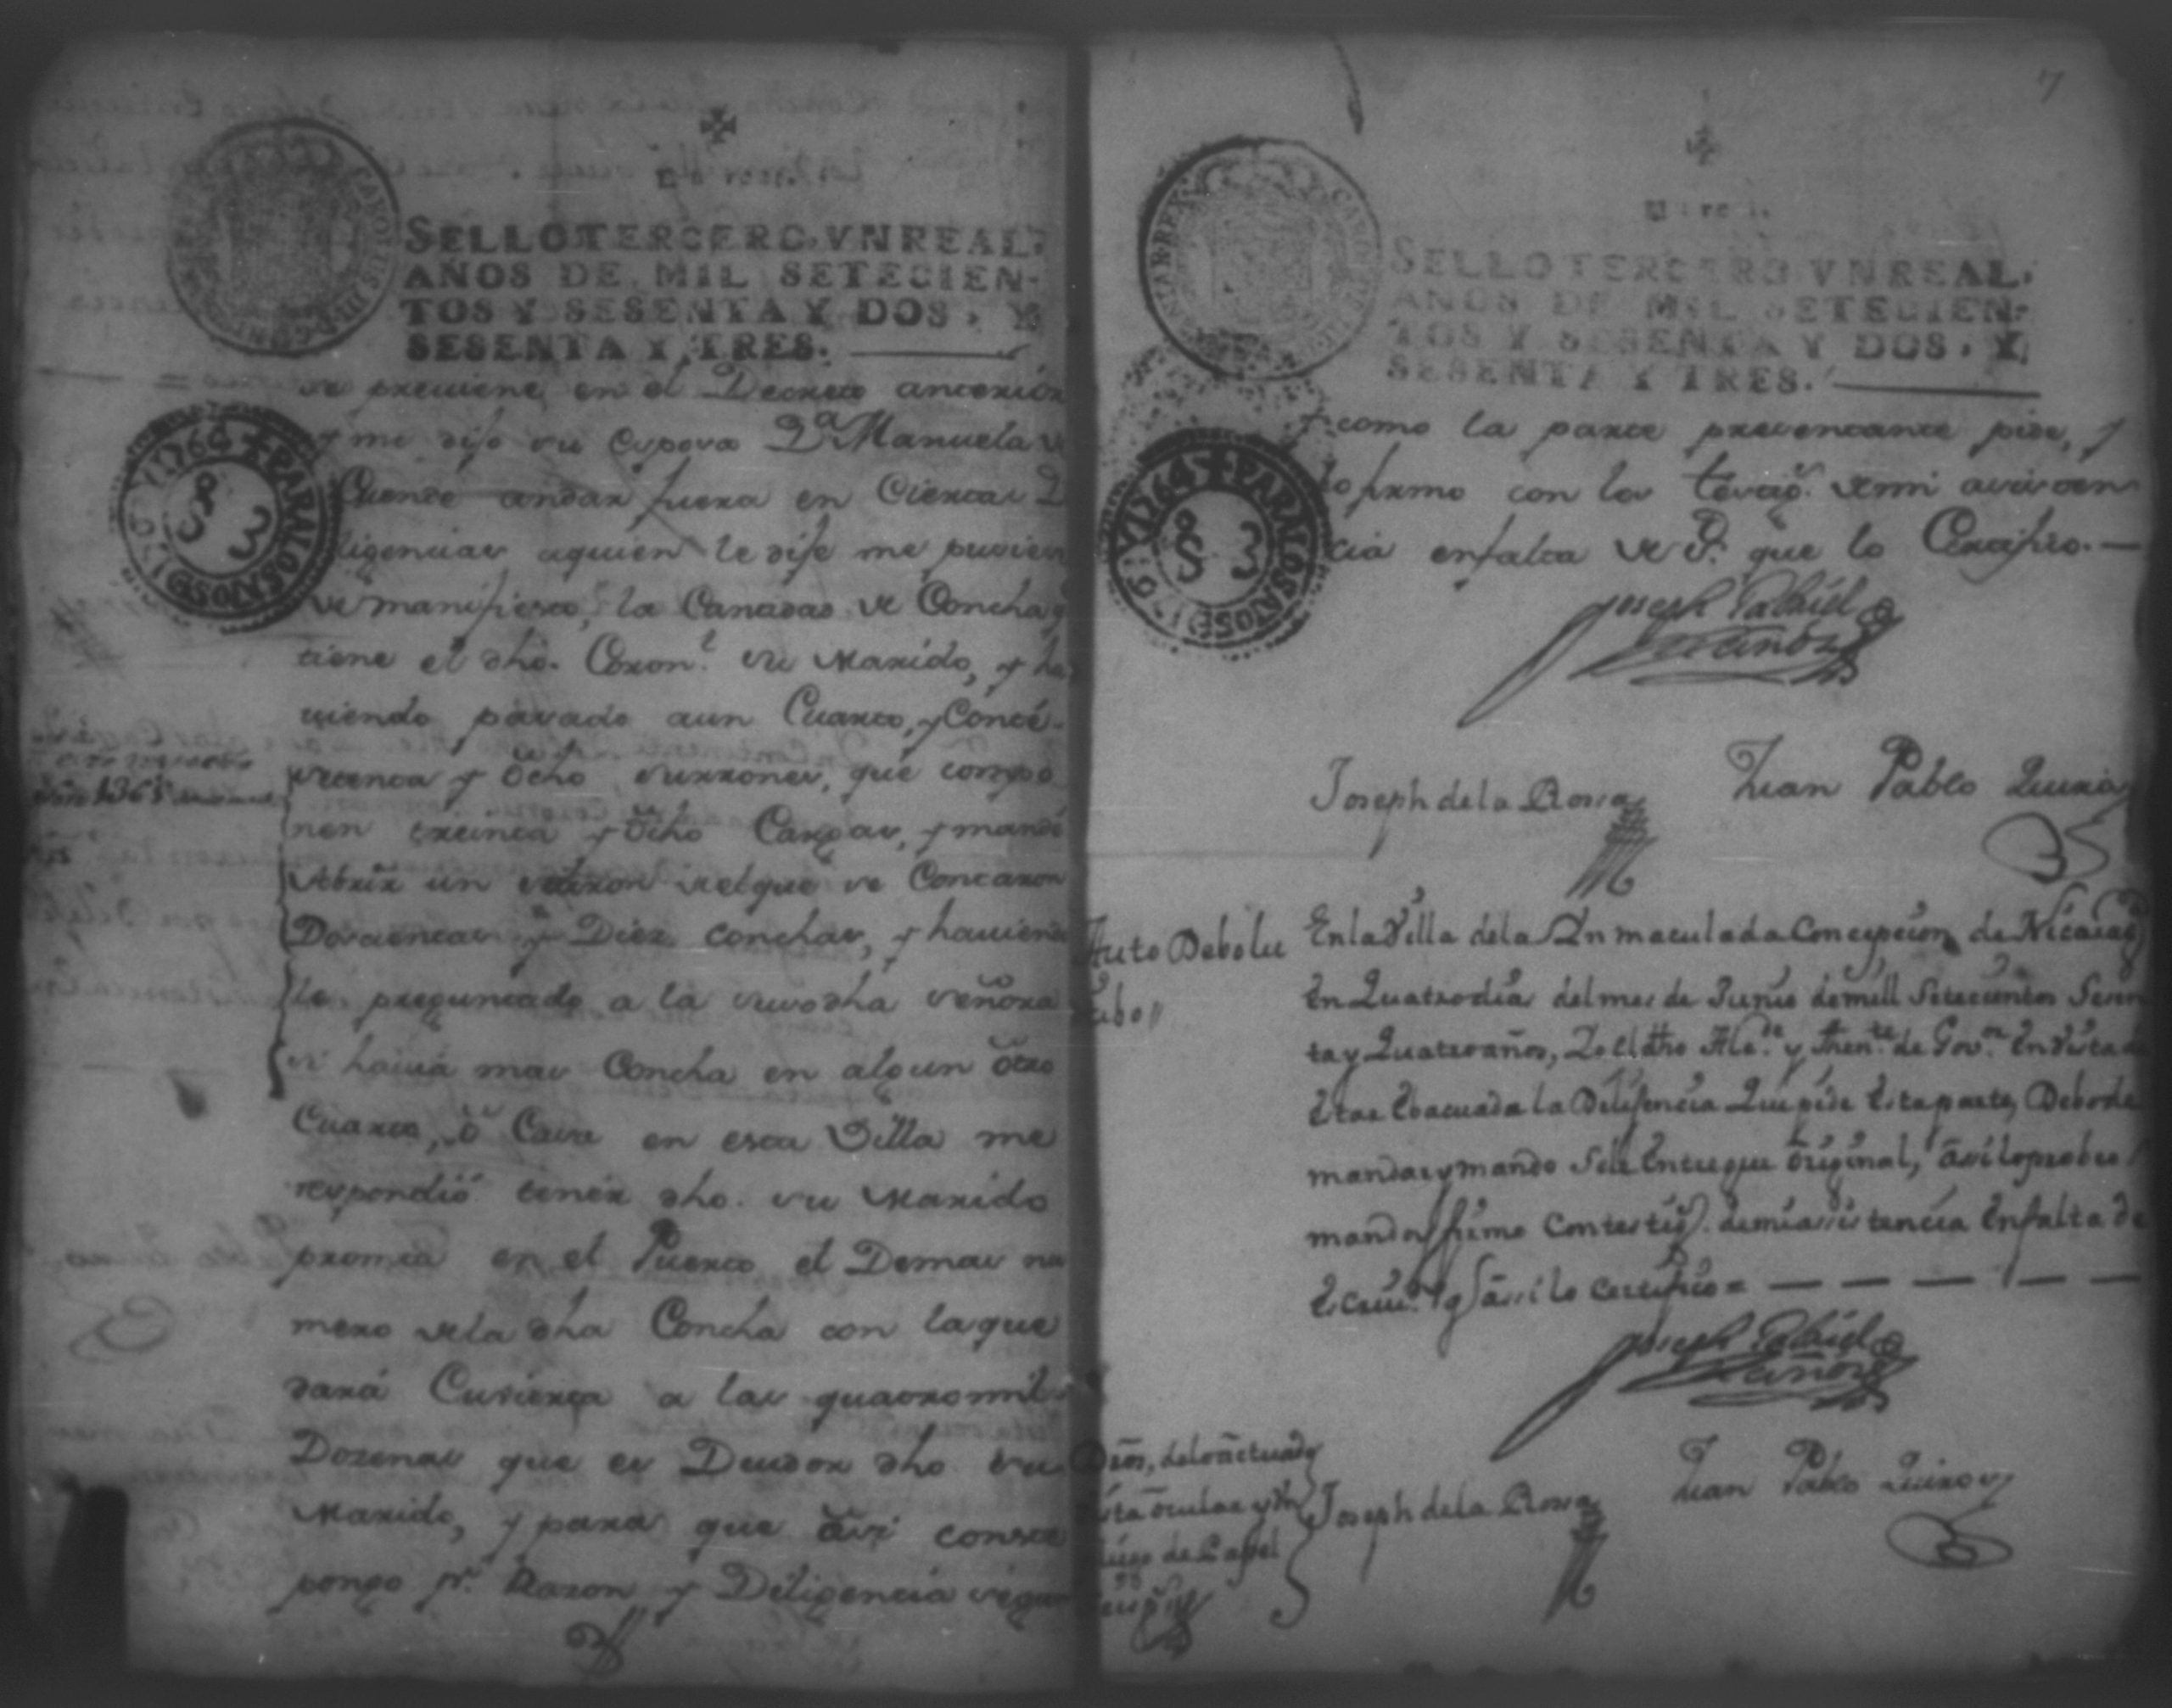 SELLO TERCERO, VN REAL,
AÑOS DE MIL SETECIEN-
TOS Y SESENTA Y DOS, Y
SESENTA Y TRES.
CAROLUS III D G
PARA LOS AÑOS D 1763 Y 1764
se previene en el Decreto anterior
y me dijo su Esposa Da. Manuela
andar fuera en Ciertas Di
ligencias aquien le dije me pusiese
de manifiesto, la Cantidad de Concha q
tiene el dho. Coronl. su Marido, y ha
viendo pasado a un Cuarto, y Conté
setenta y ôcho surrones, que compo
nen treinta y ôcho Cargas, y mandé
Abrir un surron del que se Contaron
Doscientas y Diez conchas, y haviendo
le preguntado a la suso dha señora
si havia mas Concha en algun ôtro
Cuarto, ô Casa en esta Villa me
respondió tener dho. su Marido
prompta en el Puerto el Demas nu
mero de la dha Concha con la que
dará Cuvierta a las quatro mil
Dozenas que es Deudor dho su
Marido, y para que âsi conste
pongo pr. Razon y Diligencia segun
7
SELLO TERCERO VN REAL,
AÑOS DE MIL SETECIEN-
TOS Y SESENTA Y DOS, Y
SESENTA Y TRES.
PARA LOS AÑOS D 1763 Y 1764
y como la parte presentante pide, y
lo firmo con los testigs. de mi asisten
cia en falta de S. que lo Certifico.—
Joseph Gabriel
Joseph de la Rossa
Juan Pablo Quiros
Auto Debolu
tibo
En la Villa de la Inmaculada Concepcion de Nicarag
en Quatro dias del mes de Junio de mill Setecientos Sesen
ta y Quatro años, Yo el dho Alcde. y Thente. de Govor. en vista de
estar Evacuada la Delijencia Que pide Esta parte, Debo de
mandar y mando Se le Entregue Original, asi lo probeo
mando y firmo Con testigs. de mi assistencia En falta de
Escrivo. Y q assi lo certifico =
Joseph Gabriel
Joseph de la Rossa
Juan Pablo Quiros
Dros, de lo actuado
vista ocular y un
pliego de Papel